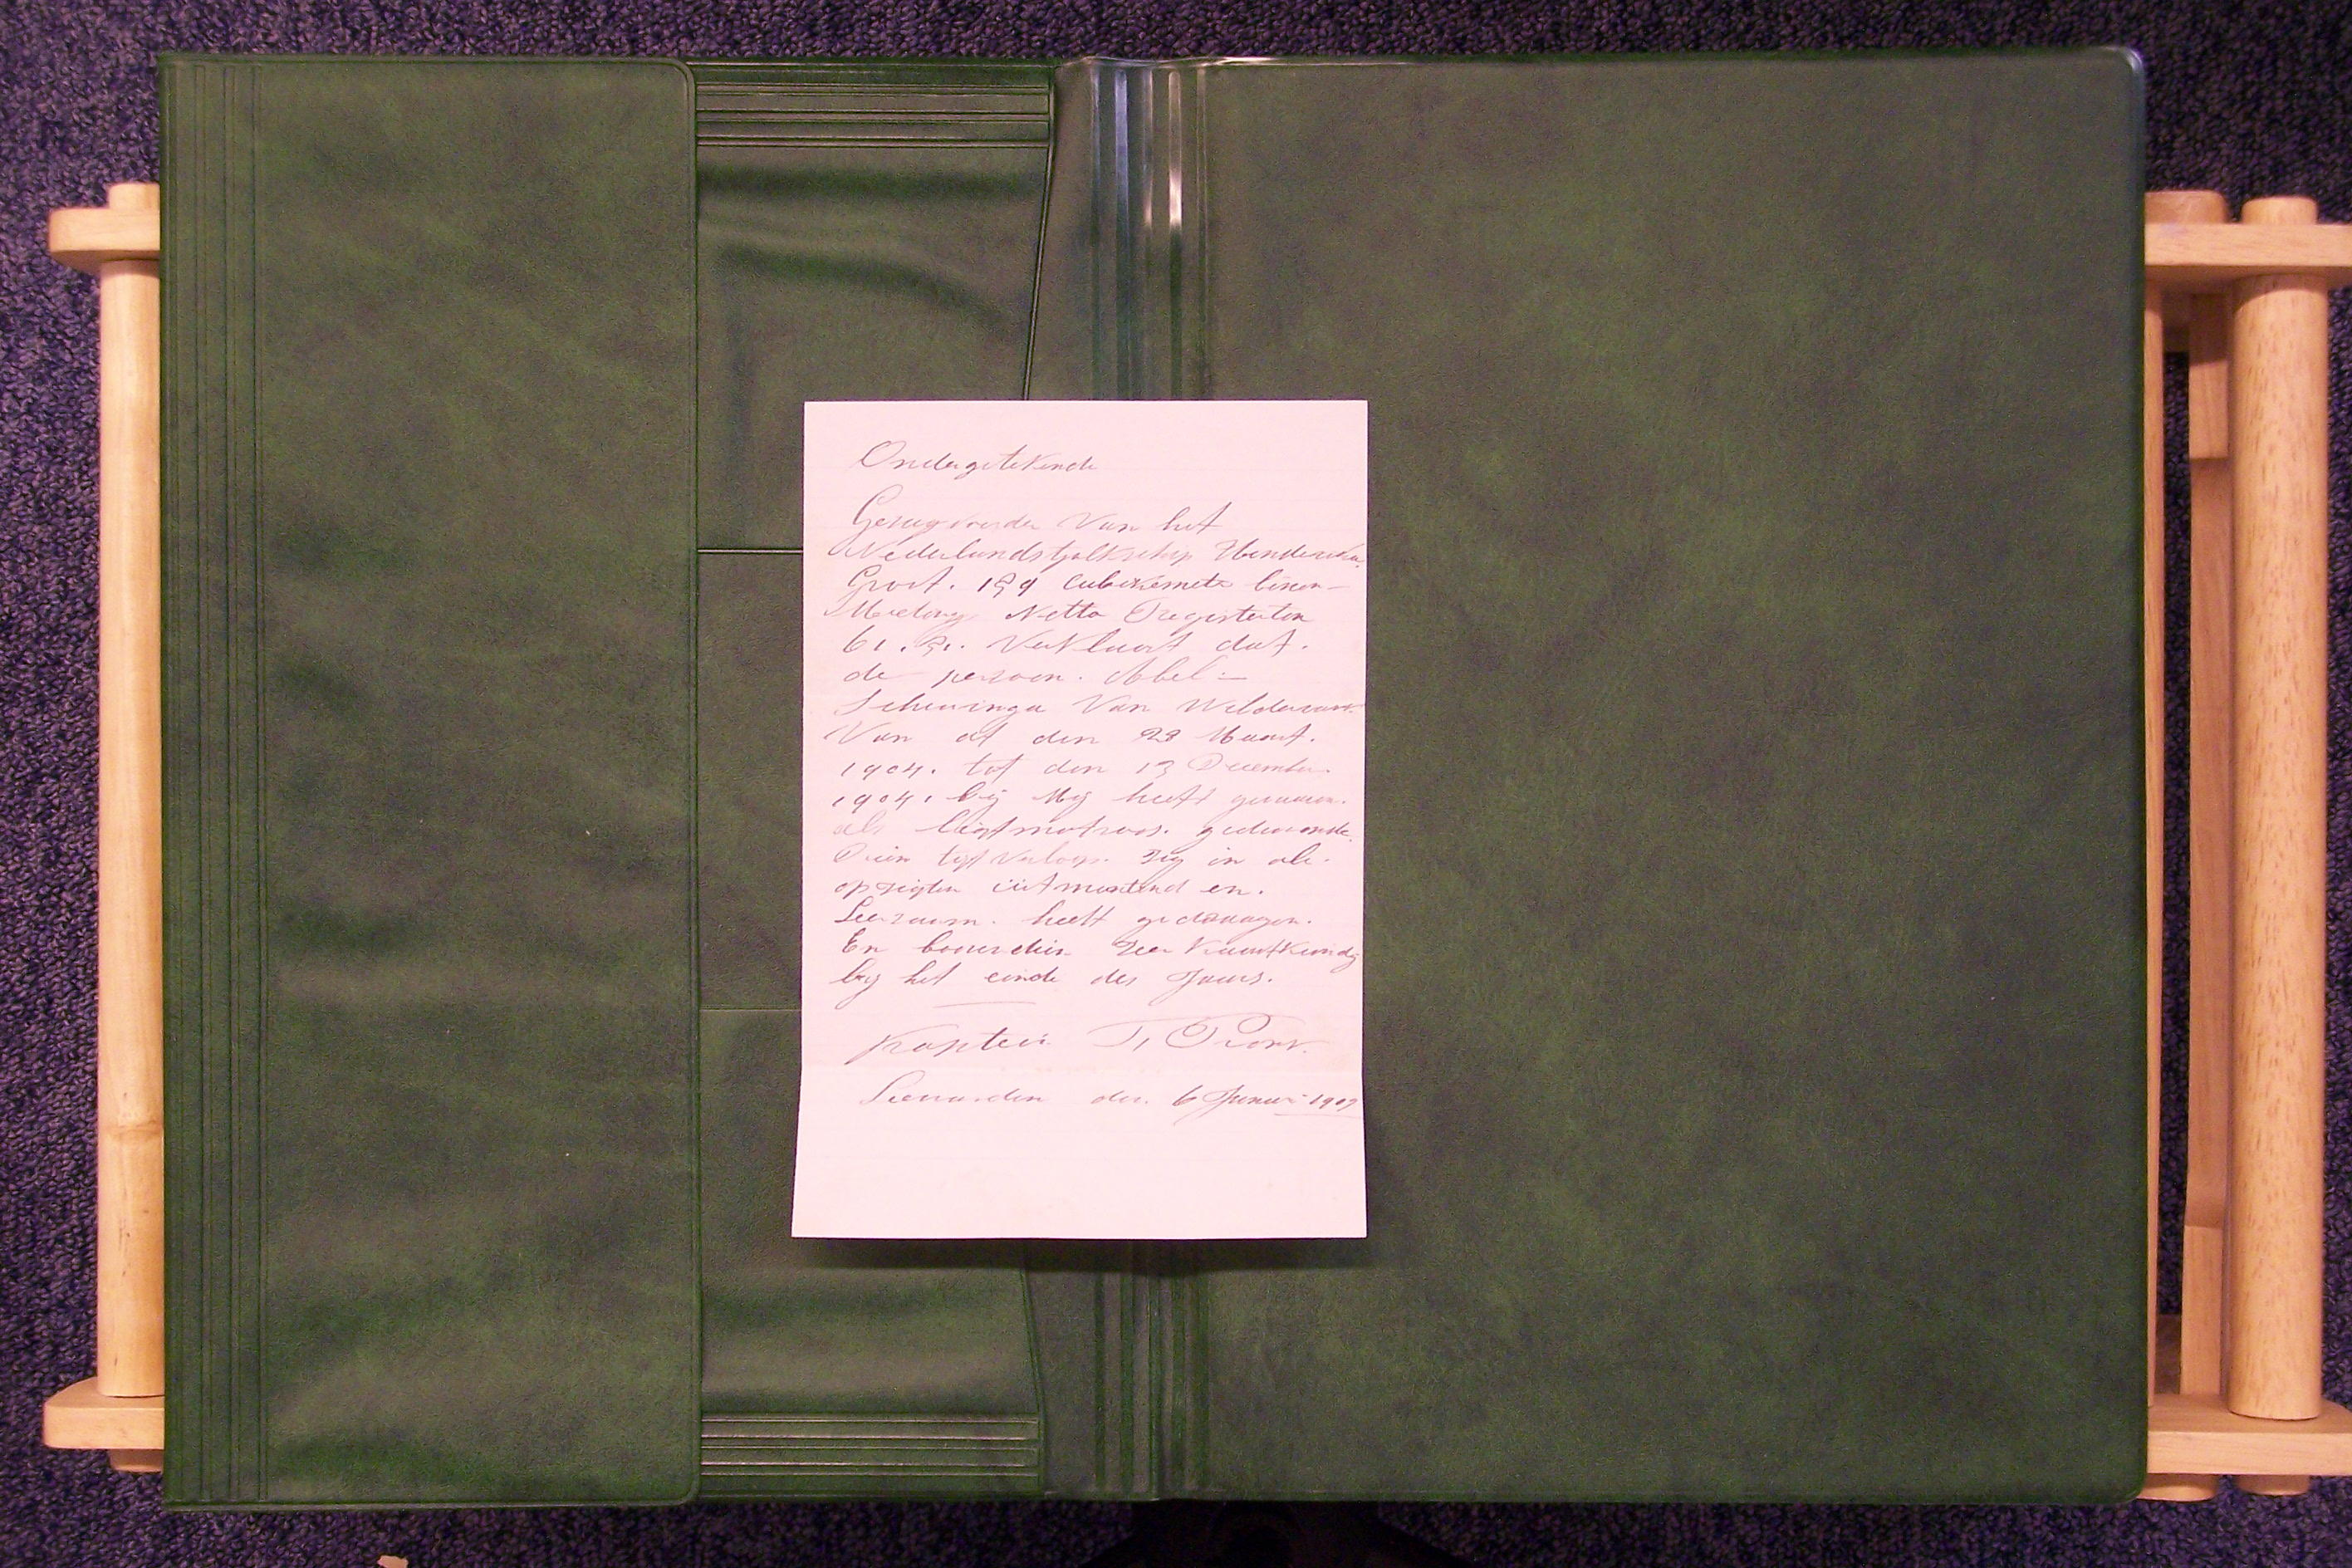 Ondergetekende
Gezagvoerder Van het
Nederlandstjalkschip Hendericka
Groot. 179 Cubikemete binen-
Meeting Netto Registerton
61.71. Verklaart dat.
de persoon. Abel -
Scheuringa Van Wildervank
Van af den 23 Maart.
1904. tot den 13 December
1904. bij Mij heeft gevaren.
als ligtmatroos. gedurende
Dien tijt verloop. zig in ale.
opzigten uitmuntend en.
Leerzaam. heeft gedragen.
En bovendien zeer kunstkundig
bij het einde des Jaars.
Kaptein T,
Leeuwarden den. 6 Januari 1907